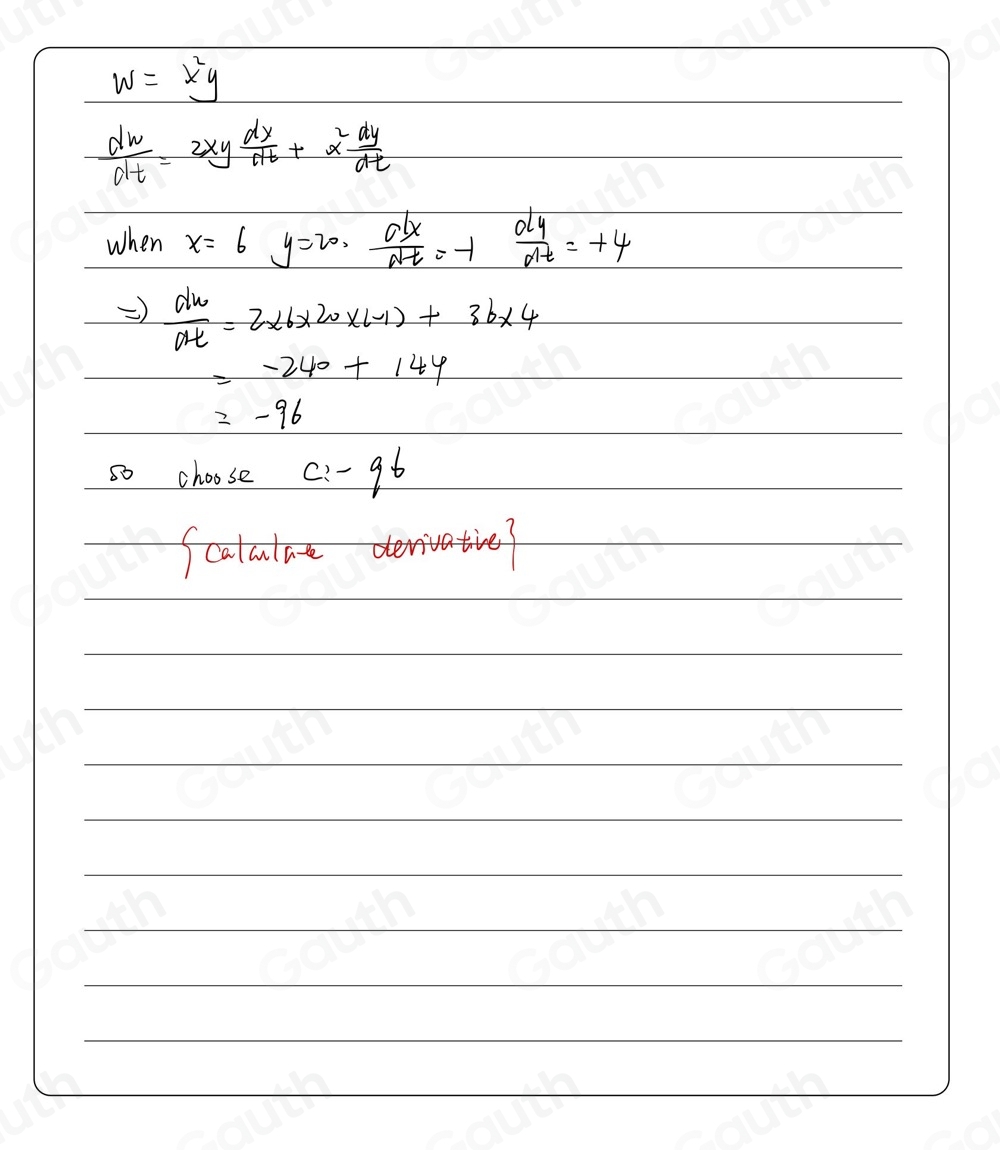 w = x²y
dw/dt = 2xy dx/dt + x² dy/dt
when x = 6 y = 20. dx/dt = -1 dy/dt = +4
=) dw/dt = 2×6×20×(-1) + 36×4
= -240 + 144
= -96
so choose C: -96
{calculate derivative}